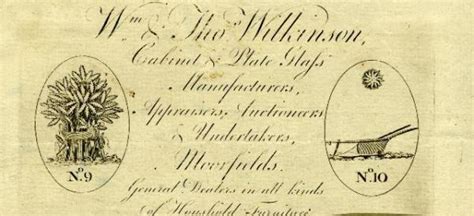 Wm & Thos Wilkinson,
Cabinet & Plate Glaſs
Manufacturers,
Appraisers, Auctioneers
& Undertakers,
Moorfields.
No. 9
No. 10
General Dealers in all kinds
of Household Furniture